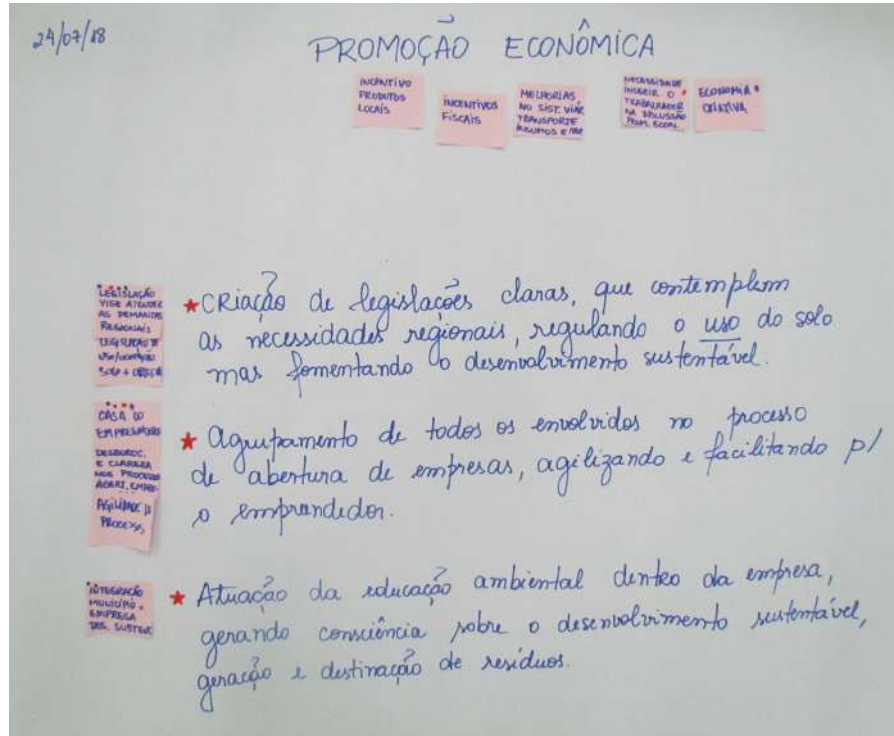 24/07/18
PROMOÇÃO ECONÔMICA
INCENTIVO
PRODUTOS
LOCAIS
INCENTIVOS
FISCAIS
MELHORIAS
NO SIST. VIÁR
TRANSPORTE
INSUMOS E
NECESSIDADE
INSERIR O
TRABALHADOR
NA DISCUSSÃO
PROM. ECON.
ECONOMIA
CRIATIVA
LEGISLAÇÃO
VISE ATENDER
AS DEMANDAS
REGIONAIS
LEGISLAÇÃO
USO/OCUPAÇÃO
SOLO +
★ CRIAÇÃO de legislações claras, que contemplem
as necessidades regionais, regulando o uso do solo
mas fomentando o desenvolvimento sustentável.
CASA DO
EMPREENDEDOR
DESBUROC.
E CLAREZA
NOS PROCESSOS
AGILIDADE
PROCESSOS
★ Agrupamento de todos os envolvidos no processo
de abertura de empresas, agilizando e facilitando p/
o emprendedor.
INTEGRAÇÃO
MUNICÍPIO
EMPRESA
DES. SUSTENT.
★ Atuação da educação ambiental dentro da empresa,
gerando consciência sobre o desenvolvimento sustentável,
geração e destinação de resíduos.